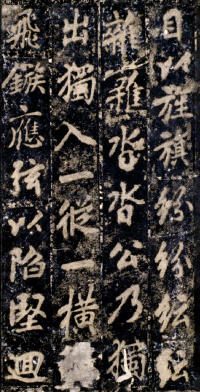 目以旌旗紛紛紜紜
雜雜沓沓公乃獨
出獨入一從一橫
飛鏃應弦以陷堅迴